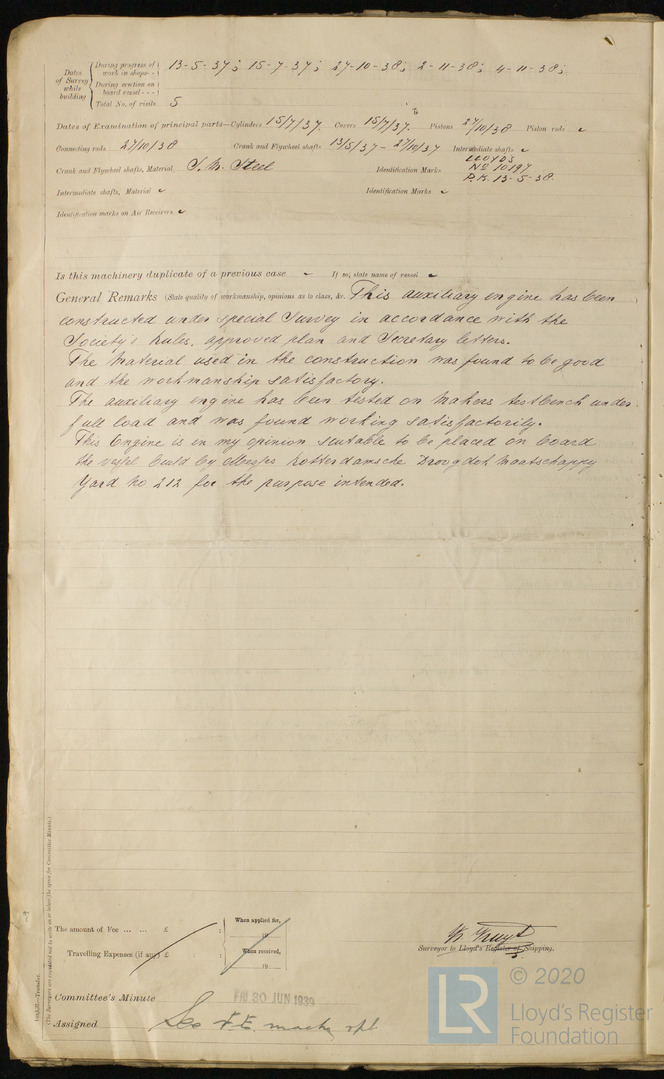 Dates of Survey while building
During progress of work in shops - - 13-5-37; 15-7-37; 27-10-38; 2-11-38; 4-11-38;
During erection on board vessel - - -
Total No. of visits 5
Dates of Examination of principal parts—Cylinders 15/7/37. Covers 15/7/37. Pistons 27/10/38 Piston rods
Connecting rods 27/10/38 Crank and Flywheel shafts 13/5/37 - 27/10/37 Intermediate shafts
Crank and Flywheel shafts, Material S. M. Steel Identification Marks LLOYDS
No 10197
P.K. 13-5-38
Intermediate shafts, Material Identification Marks
Identification marks on Air Receivers
Is this machinery duplicate of a previous case If so, state name of vessel
General Remarks (State quality of workmanship, opinions as to class, &c. This auxiliary engine has been
constructed under special Survey in accordance with the
Society's Rules, approved plan and Secretary letters.
The material used in the construction was found to be good
and the workmanship satisfactory.
The auxiliary engine has been tested on makers testbench under
full load and was found working satisfactorily.
This Engine is in my opinion suitable to be placed on board
the vessel build by Messrs Rotterdamsche Droogdok Maatschappy
Yard No 212 for the purpose intended.
(The Surveyors are requested not to write on or below the space for Committee Minute.)
The amount of Fee ... ... £ : When applied for,
19
Travelling Expenses (if any) £ : When received,
19
Surveyor to Lloyd's Register of Shipping.
Committee's Minute FRI 30 JUN 1939
Assigned See F.E. mchy rpt
LR
© 2020
Lloyd's Register
Foundation